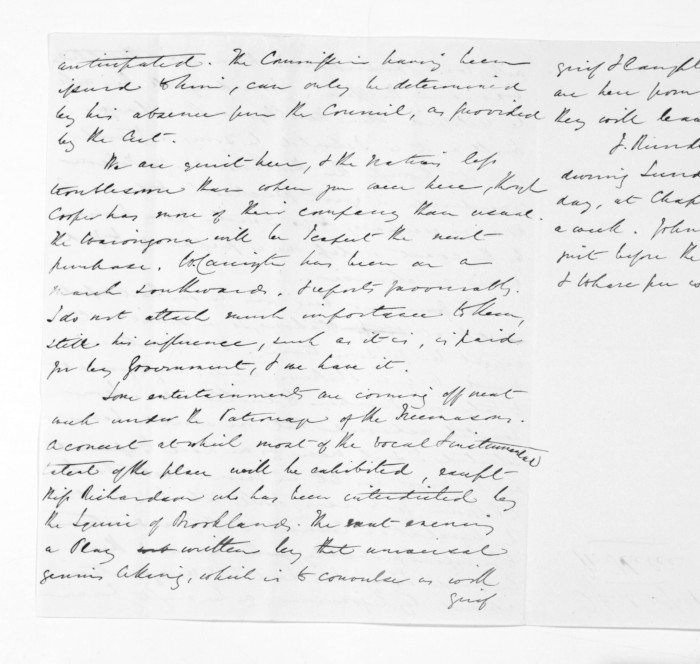 anticipated. The Commission having been
issued to him, can only be determined
by his absence from the Council, as provided
by the Act.
We are quiet here, & the Natives less
troublesome than when you were here, though
Cooper has more of their company than usual.
The Wairongona will be I expect the next
purchase. Wi Tamihana has been on a
march southwards. & reports favourably.
I do not attach much importance to them,
still his influence, such as it is, is paid
for by Government, & we have it.
Some entertainments are coming off next
week under the Patronage of the Freemasons.
A concert at which most of the vocal & instrumental
talent of the place will be exhibited, except
Miss Richardson who has been interdicted by
the Squire of Brooklands. The next evening
a Play written by that universal
genius , which is to convulse us with
grief
grief & laught
are here from
they will leav
J.
during Sund
day, at Chap
a week. John
just before the
& Whare